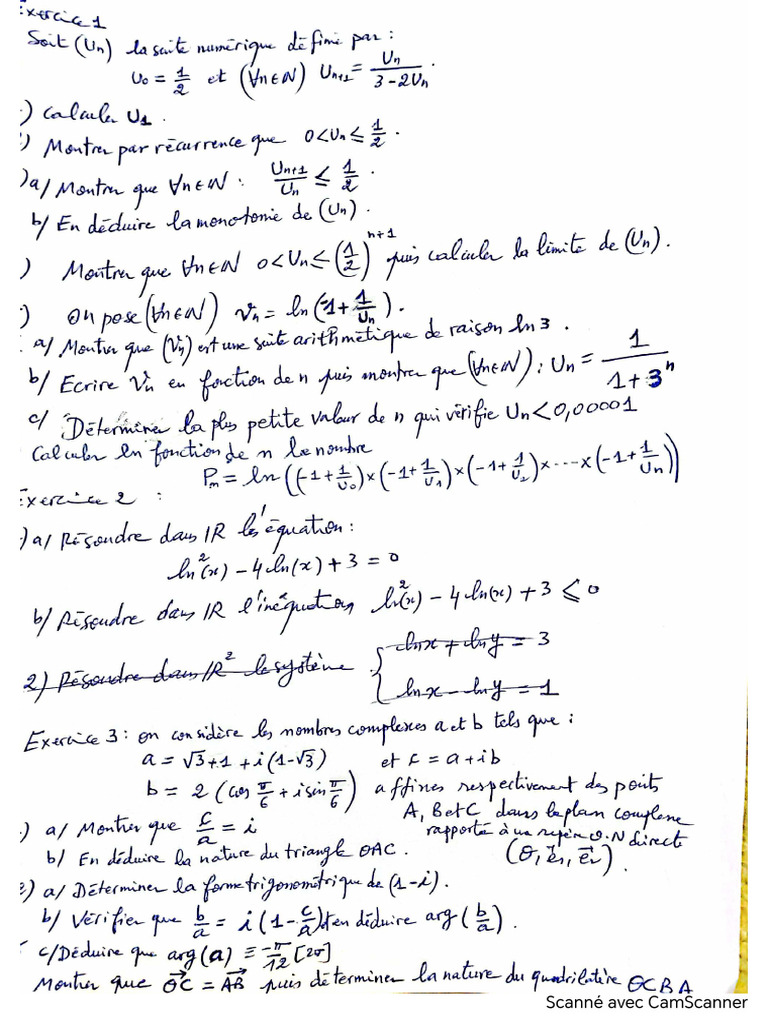 Exercice 1
Soit (Un) la suite numérique définie par :
U0 = 1/2 et (∀n∈ℕ) Un+1 = Un / (3 - 2Un) .
) Calculer U1 .
) Montrer par récurrence que 0 < Un ≤ 1/2 .
) a/ Montrer que ∀n∈ℕ : Un+1/Un ≤ 1/2 .
b/ En déduire la monotonie de (Un) .
) Montrer que ∀n∈ℕ 0 < Un ≤ (1/2)^n+1 puis calculer la limite de (Un) .
) On pose (∀n∈ℕ) Vn = ln(-1 + 1/Un) .
a/ Montrer que (Vn) est une suite arithmétique de raison ln 3 .
b/ Ecrire Vn en fonction de n puis montrer que (∀n∈ℕ) : Un = 1 / (1 + 3^n)
c/ Déterminer la plus petite valeur de n qui vérifie Un < 0,00001
Calculer en fonction de n le nombre
Pn = ln((-1 + 1/U0) × (-1 + 1/U1) × (-1 + 1/U2) × ... × (-1 + 1/Un))
Exercice 2 :
) a/ Résoudre dans IR l'équation :
ln²(x) - 4 ln(x) + 3 = 0
b/ Résoudre dans IR l'inéquation ln²(x) - 4 ln(x) + 3 ≤ 0
2) Résoudre dans IR² le système { lnx + lny = 3
lnx - lny = 1
Exercice 3 : on considère les nombres complexes a et b tels que :
a = √3 + 1 + i(1 - √3) et c = a + ib
b = 2 (cos π/6 + i sin π/6) affines respectivement des points
A, B et C dans le plan complexe
rapporté à un repère O.N directe
(O, e1, e2) .
) a/ Montrer que c/a = i
b/ En déduire la nature du triangle OAC .
2) a/ Déterminer la forme trigonométrique de (1 - i) .
b/ Vérifier que b/a = i(1 - c/a) et en déduire arg(b/a) .
c/ Déduire que arg(a) ≡ -π/12 [2π]
Montrer que OC = AB puis déterminer la nature du quadrilatère OCBA
Scanné avec CamScanner